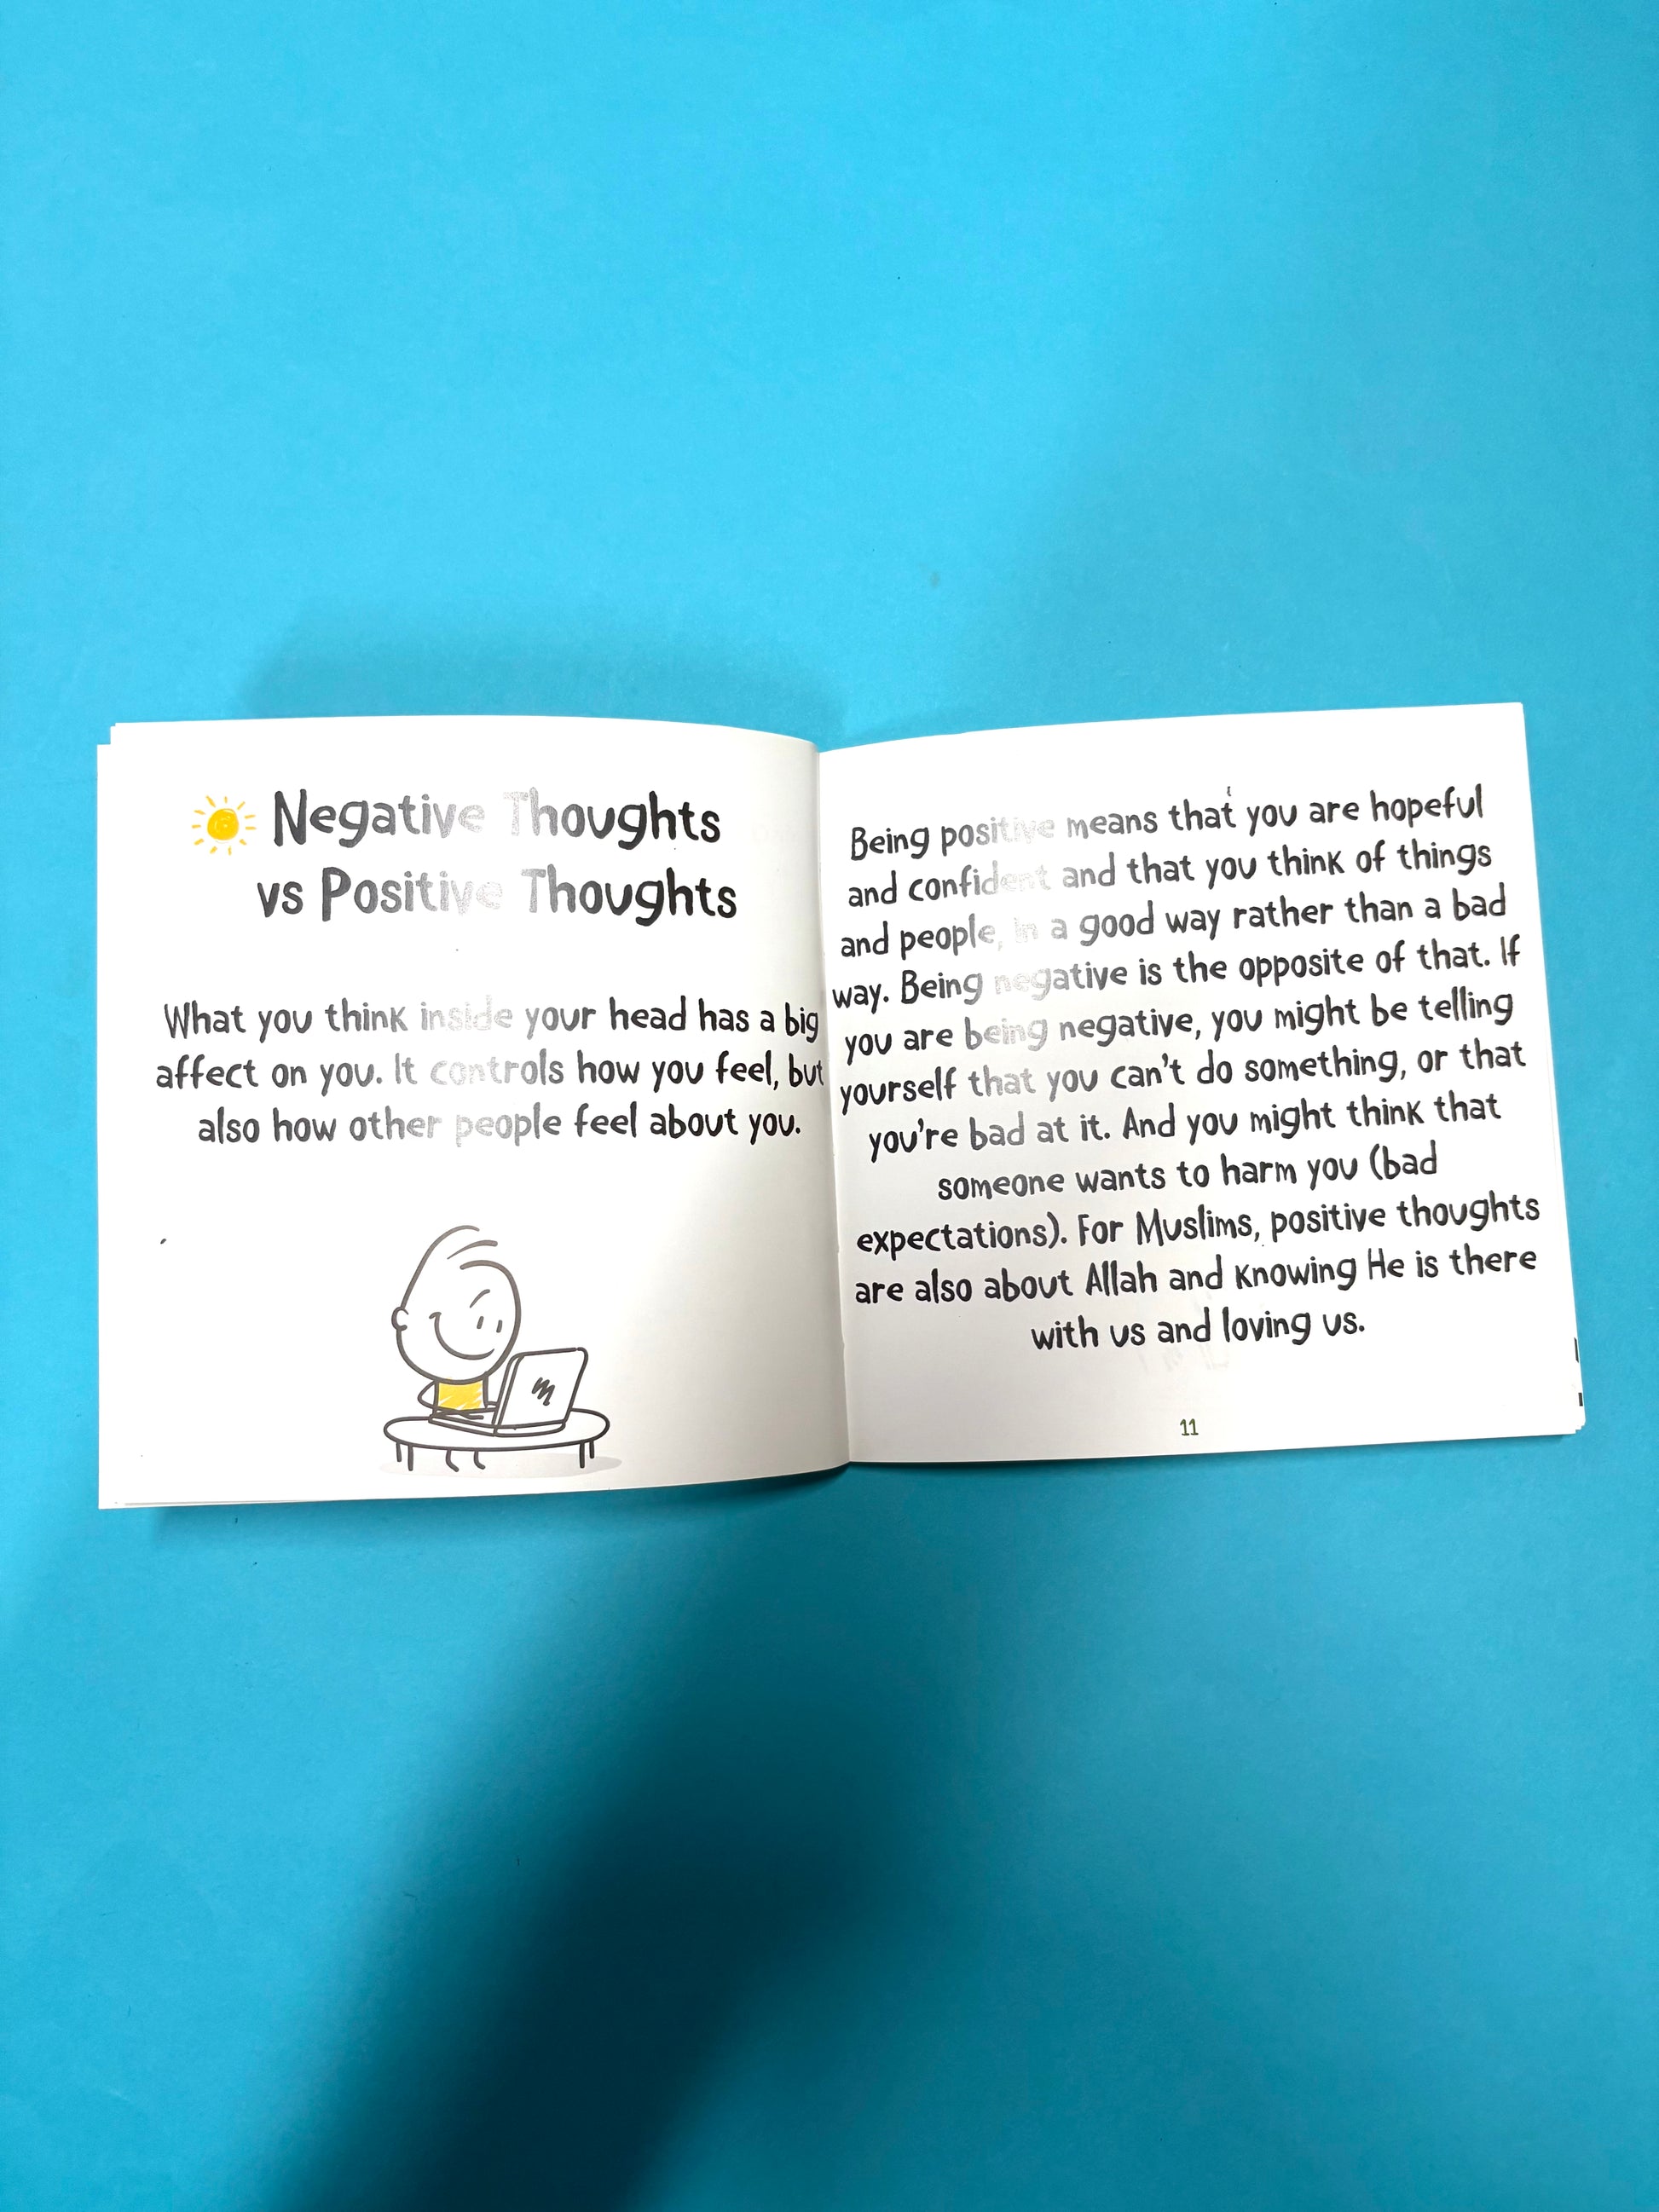 Negative Thoughts
vs Positive Thoughts
What you think inside your head has a big
affect on you. It controls how you feel, but
also how other people feel about you.
Being positive means that you are hopeful
and confident and that you think of things
and people, in a good way rather than a bad
way. Being negative is the opposite of that. If
you are being negative, you might be telling
yourself that you can't do something, or that
you're bad at it. And you might think that
someone wants to harm you (bad
expectations). For Muslims, positive thoughts
are also about Allah and knowing He is there
with us and loving us.
11